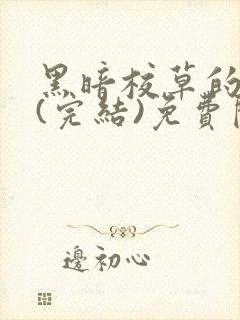 黑暗校草的
(完結)免費
邊初心